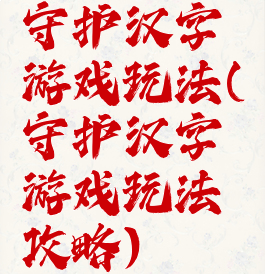 守护汉字
游戏玩法(
守护汉字
游戏玩法
攻略)